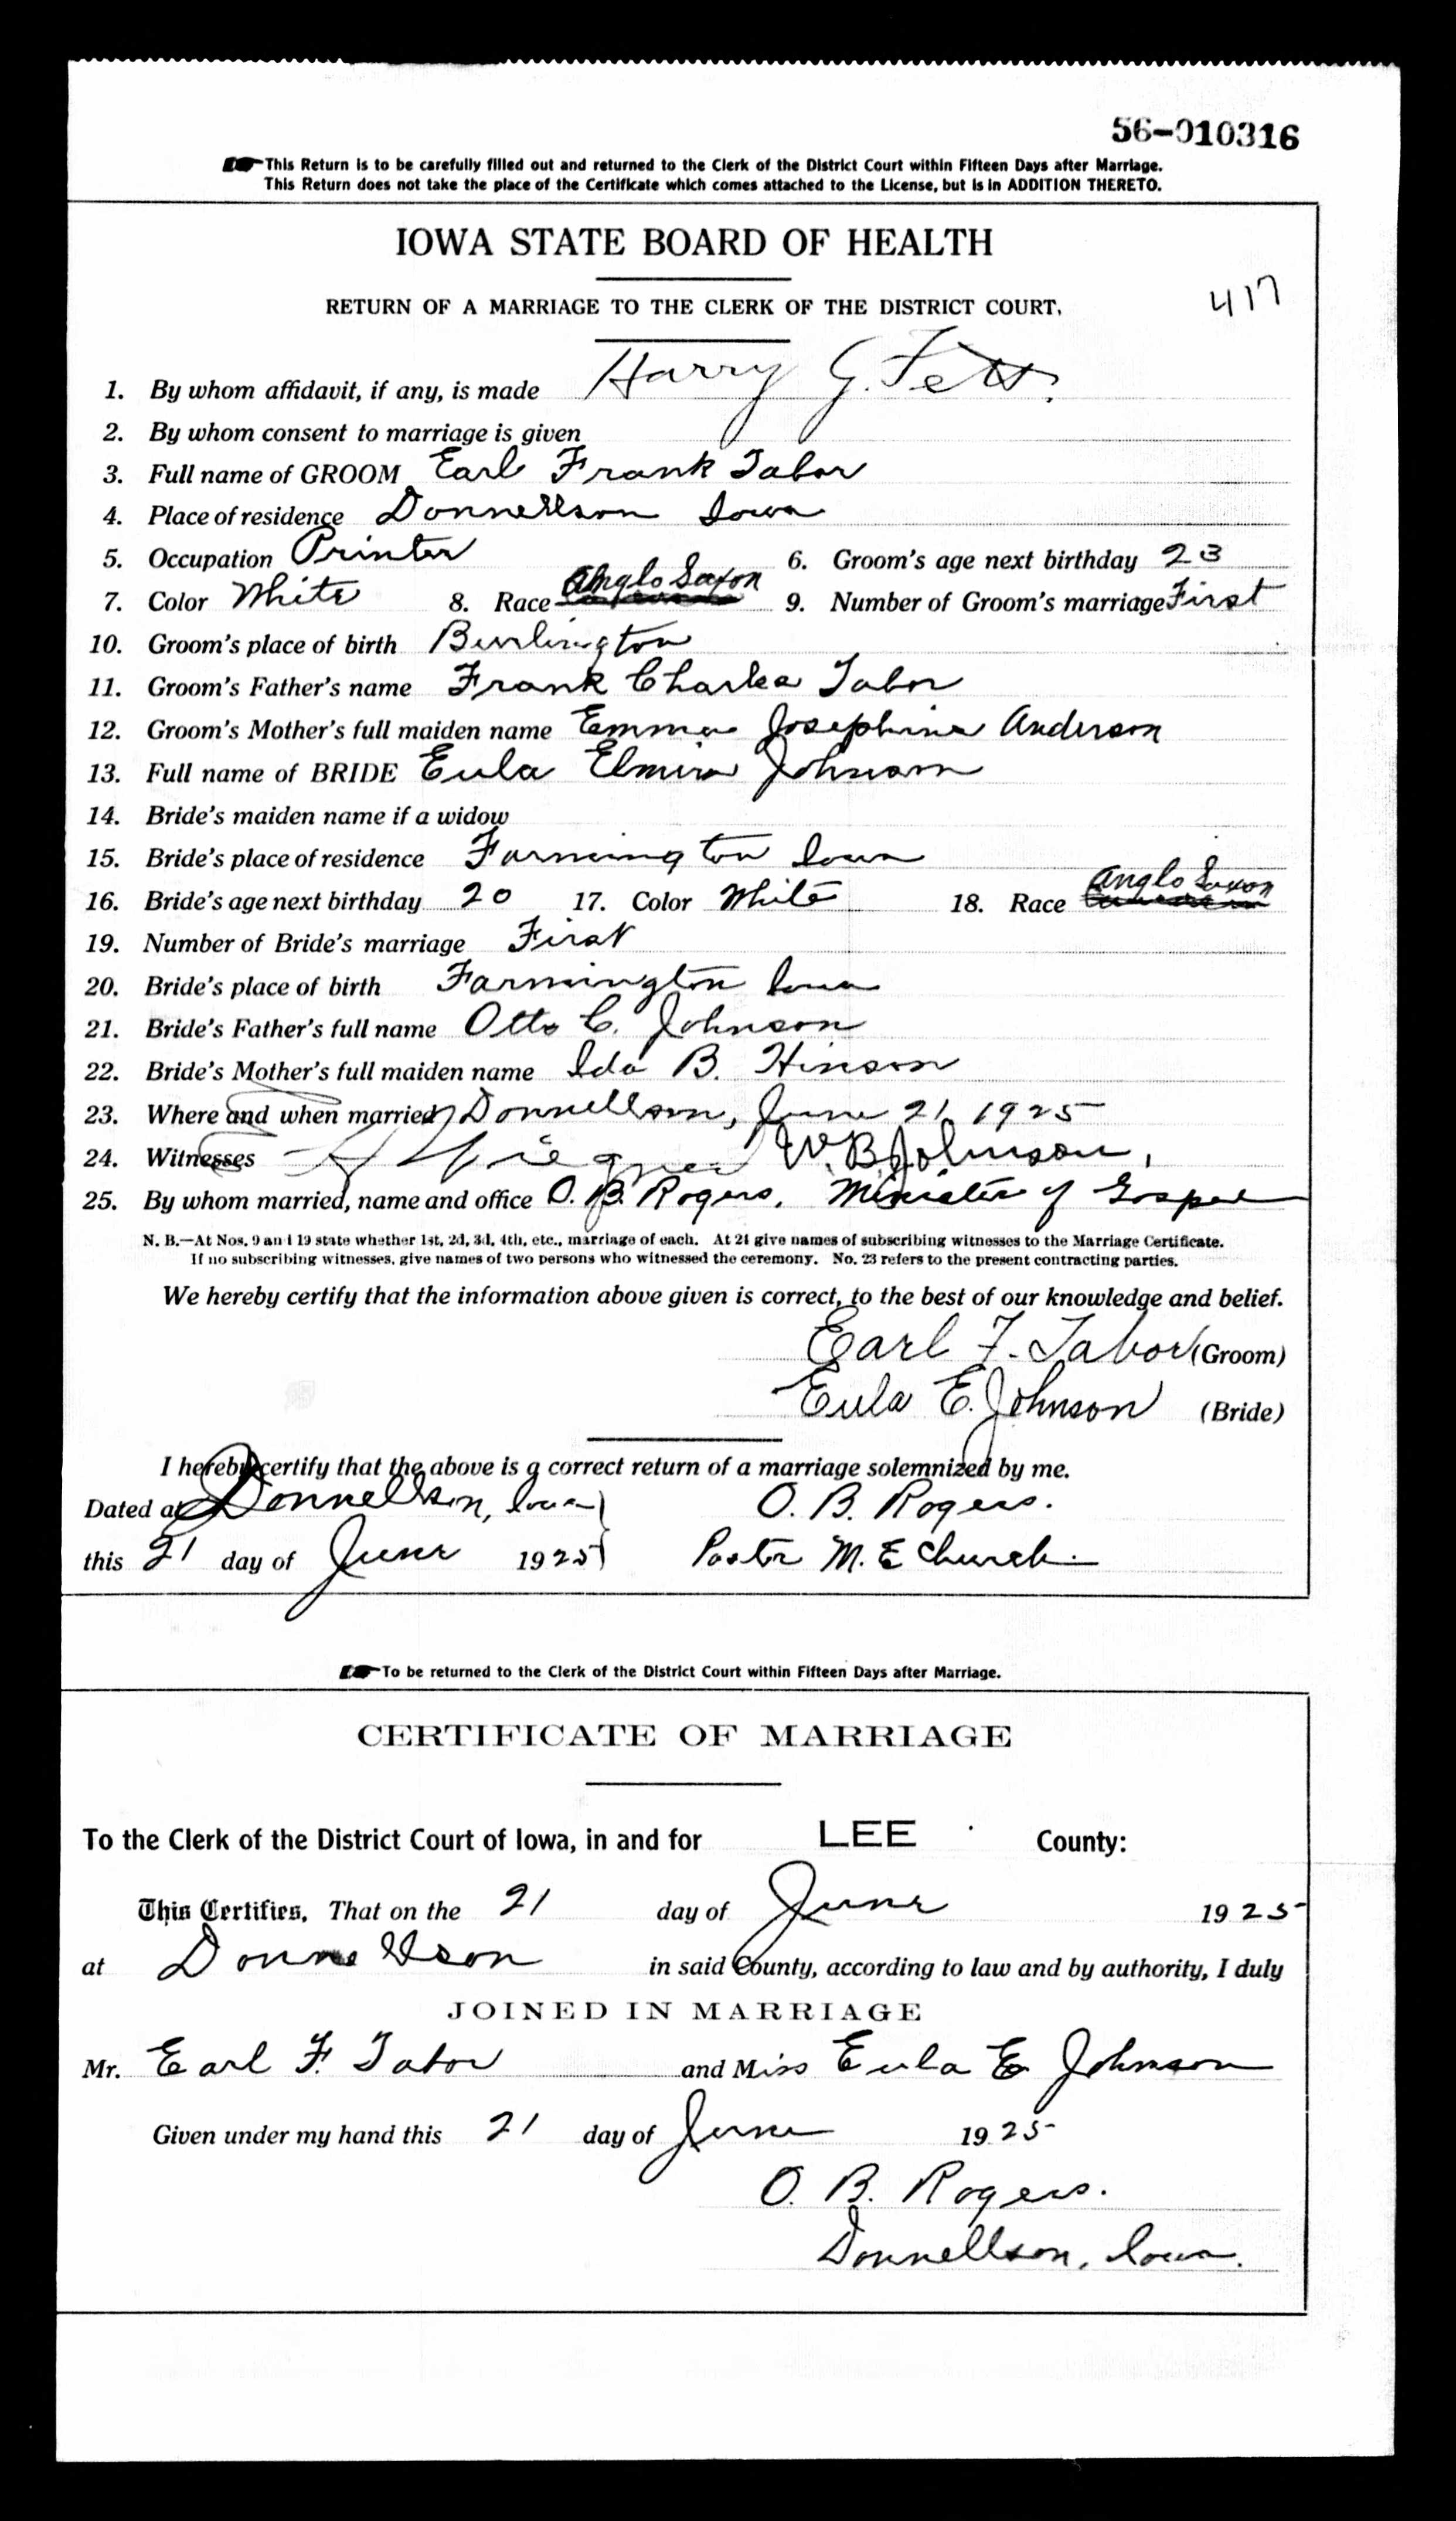 56-010316
This Return is to be carefully filled out and returned to the Clerk of the District Court within Fifteen Days after Marriage.
This Return does not take the place of the Certificate which comes attached to the License, but is in ADDITION THERETO.
IOWA STATE BOARD OF HEALTH
417
RETURN OF A MARRIAGE TO THE CLERK OF THE DISTRICT COURT.
1. By whom affidavit, if any, is made Harry G. Fett.
2. By whom consent to marriage is given
3. Full name of GROOM Earl Frank Tabor
4. Place of residence Donnellson Iowa
5. Occupation Printer 6. Groom's age next birthday 23
7. Color White 8. Race Anglo Saxon 9. Number of Groom's marriage First
10. Groom's place of birth Burlington
11. Groom's Father's name Frank Charles Tabor
12. Groom's Mother's full maiden name Emma Josephine Anderson
13. Full name of BRIDE Eula Elmira Johnson
14. Bride's maiden name if a widow
15. Bride's place of residence Farmington Iowa
16. Bride's age next birthday 20 17. Color White 18. Race Anglo Saxon
19. Number of Bride's marriage First
20. Bride's place of birth Farmington Iowa
21. Bride's Father's full name Otto C. Johnson
22. Bride's Mother's full maiden name Ida B. Hinson
23. Where and when married Donnellson, June 21, 1925
24. Witnesses W. B. Johnson,
25. By whom married, name and office O. B. Rogers, Minister of Gospel
N. B.—At Nos. 9 and 19 state whether 1st, 2d, 3d, 4th, etc., marriage of each. At 24 give names of subscribing witnesses to the Marriage Certificate.
If no subscribing witnesses, give names of two persons who witnessed the ceremony. No. 23 refers to the present contracting parties.
We hereby certify that the information above given is correct, to the best of our knowledge and belief.
Earl F. Tabor (Groom)
Eula E. Johnson (Bride)
I hereby certify that the above is a correct return of a marriage solemnized by me.
Dated at Donnellson, Iowa O. B. Rogers.
this 21 day of June 1925 Pastor M. E Church.
To be returned to the Clerk of the District Court within Fifteen Days after Marriage.
CERTIFICATE OF MARRIAGE
To the Clerk of the District Court of Iowa, in and for LEE County:
This Certifies, That on the 21 day of June 1925
at Donnellson in said County, according to law and by authority, I duly
JOINED IN MARRIAGE
Mr. Earl F. Tabor and Miss Eula E Johnson
Given under my hand this 21 day of June 1925
O. B. Rogers.
Donnellson, Iowa.